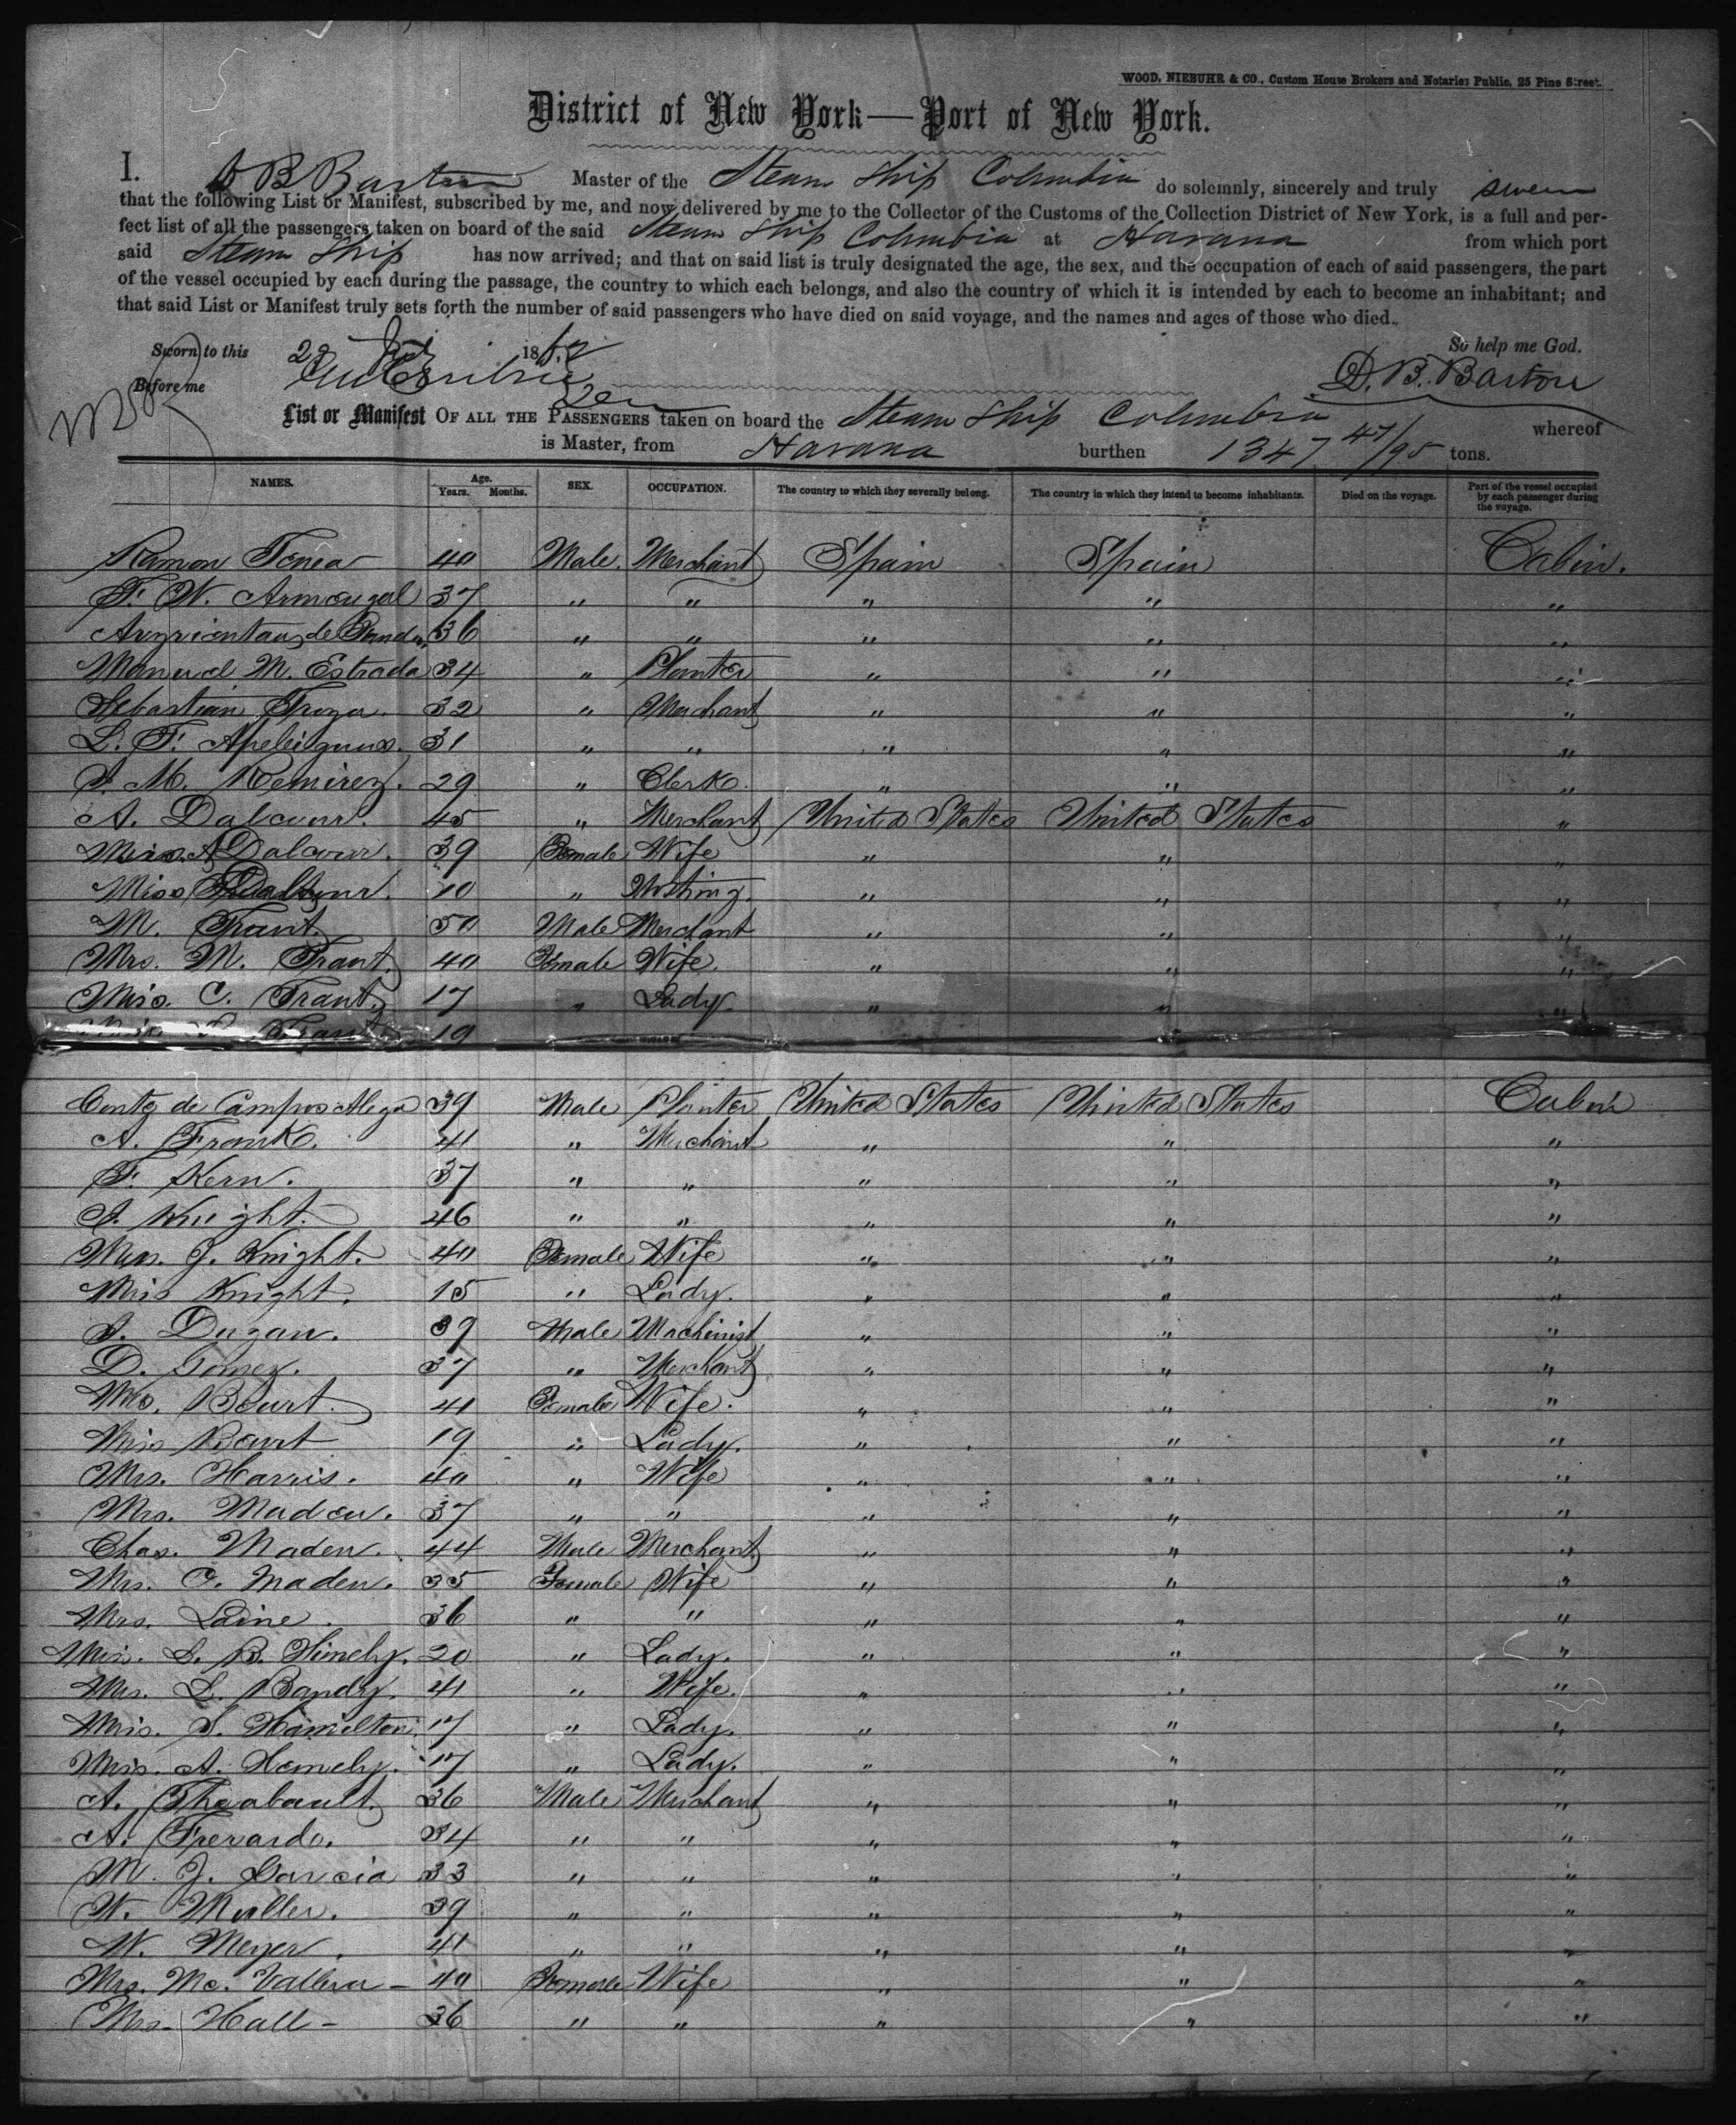 WOOD, NIEBUHR & CO., Custom House Brokers and Notaries Public, 25 Pine Street.
District of New York—Port of New York.
I. D B Barton Master of the Steam Ship Columbia do solemnly, sincerely and truly swear
that the following List or Manifest, subscribed by me, and now delivered by me to the Collector of the Customs of the Collection District of New York, is a full and per-
fect list of all the passengers taken on board of the said Steam Ship Columbia at Havana from which port
said Steam Ship has now arrived; and that on said list is truly designated the age, the sex, and the occupation of each of said passengers, the part
of the vessel occupied by each during the passage, the country to which each belongs, and also the country of which it is intended by each to become an inhabitant; and
that said List or Manifest truly sets forth the number of said passengers who have died on said voyage, and the names and ages of those who died.
So help me God.
Sworn to this 29 18
Before me D. B. Barton
List or Manifest OF ALL THE PASSENGERS taken on board the Steam Ship Columbia whereof
is Master, from Havana burthen 1347 47/95 tons.
NAMES. Age. Years. Months. SEX. OCCUPATION. The country to which they severally belong. The country in which they intend to become inhabitants. Died on the voyage. Part of the vessel occupied by each passenger during the voyage.
Ramon 40 Male Merchant Spain Spain Cabin.
F. W. 37 " " " " "
de 36 " " " " "
Manuel M. Estrada 34 " Planter " " "
Sebastian 32 " Merchant " " "
L. F. 31 " " " " "
M. Remirez. 29 " Clerk. " " "
A. Dalcour. 45 " Merchant United States United States "
A Dalcour. 39 Female Wife " " "
Miss 10 " Nothing. " " "
M. Trant. 50 Male Merchant " " "
Mrs. M. Trant. 40 Female Wife. " " "
Miss. C. Trant. 17 " Lady. " " "
Trant 19
Conte de Campo Alegre 39 Male Planter United States United States Cabin
A. Frank. 41 " Merchant " " "
F. Kern. 37 " " " " "
J. Knight. 46 " " " " "
Mrs. J. Knight. 40 Female Wife " " "
Miss Knight. 15 " Lady. " " "
J. Dugan. 39 Male Machinist " " "
D. Gomez. 37 " Merchant " " "
Mrs. Beurt. 41 Female Wife. " " "
Miss Beurt 19 " Lady. " " "
Mrs. Harris. 40 " Wife " " "
Mrs. Maden. 37 " " " " "
Chas. Maden. 44 Male Merchant " " "
Mrs. C. Maden. 35 Female Wife " " "
Mrs. Laine. 36 " " " " "
Miss. L. B. Himely. 20 " Lady. " " "
Mrs. L. Bandy. 41 " Wife. " " "
Miss. S. Hamilton. 17 " Lady. " " "
Miss. A. Hemely. 17 " Lady. " " "
A. Theabault. 36 Male Merchant " " "
A. Frerardo. 34 " " " " "
M. J. Garcia 33 " " " " "
W. Muller. 39 " " " " "
W. Meyer. 41 " " " " "
Mrs. Mc. 40 Female Wife " " "
Mrs. Hall - 36 " " " " "